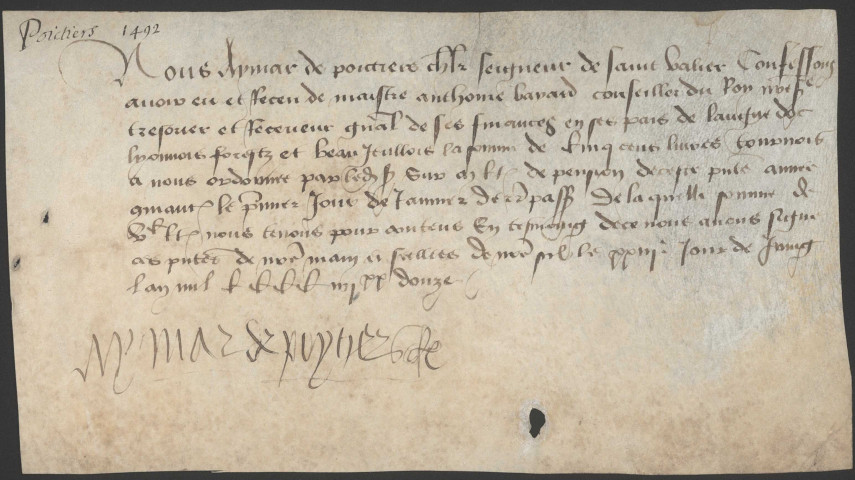 Poictiers 1492
Nous Aymar de poictiers chlr seigneur de saint Valier Confessons
avoir eu et Receu de maistre anthoine bayard conseiller du Roy nre sr
tresorier et Receveur gnal de ses finances en ses pais de languedoc
lyonnois forestz et beaujeullois la somme de Cinq cens livres tournois
a nous ordonnee par led sr Sur de pension de ceste pnte annee
le premier Jour de Janvier derr pass De laquelle somme de
Vc lt nous tenons pour contens En tesmoing de ce nous avons signe
ces pntes de nre main et seellees de nre seel le xxiiie Jour de Juing
lan mil CCCC iiii xx douze
Aymar de poytiers